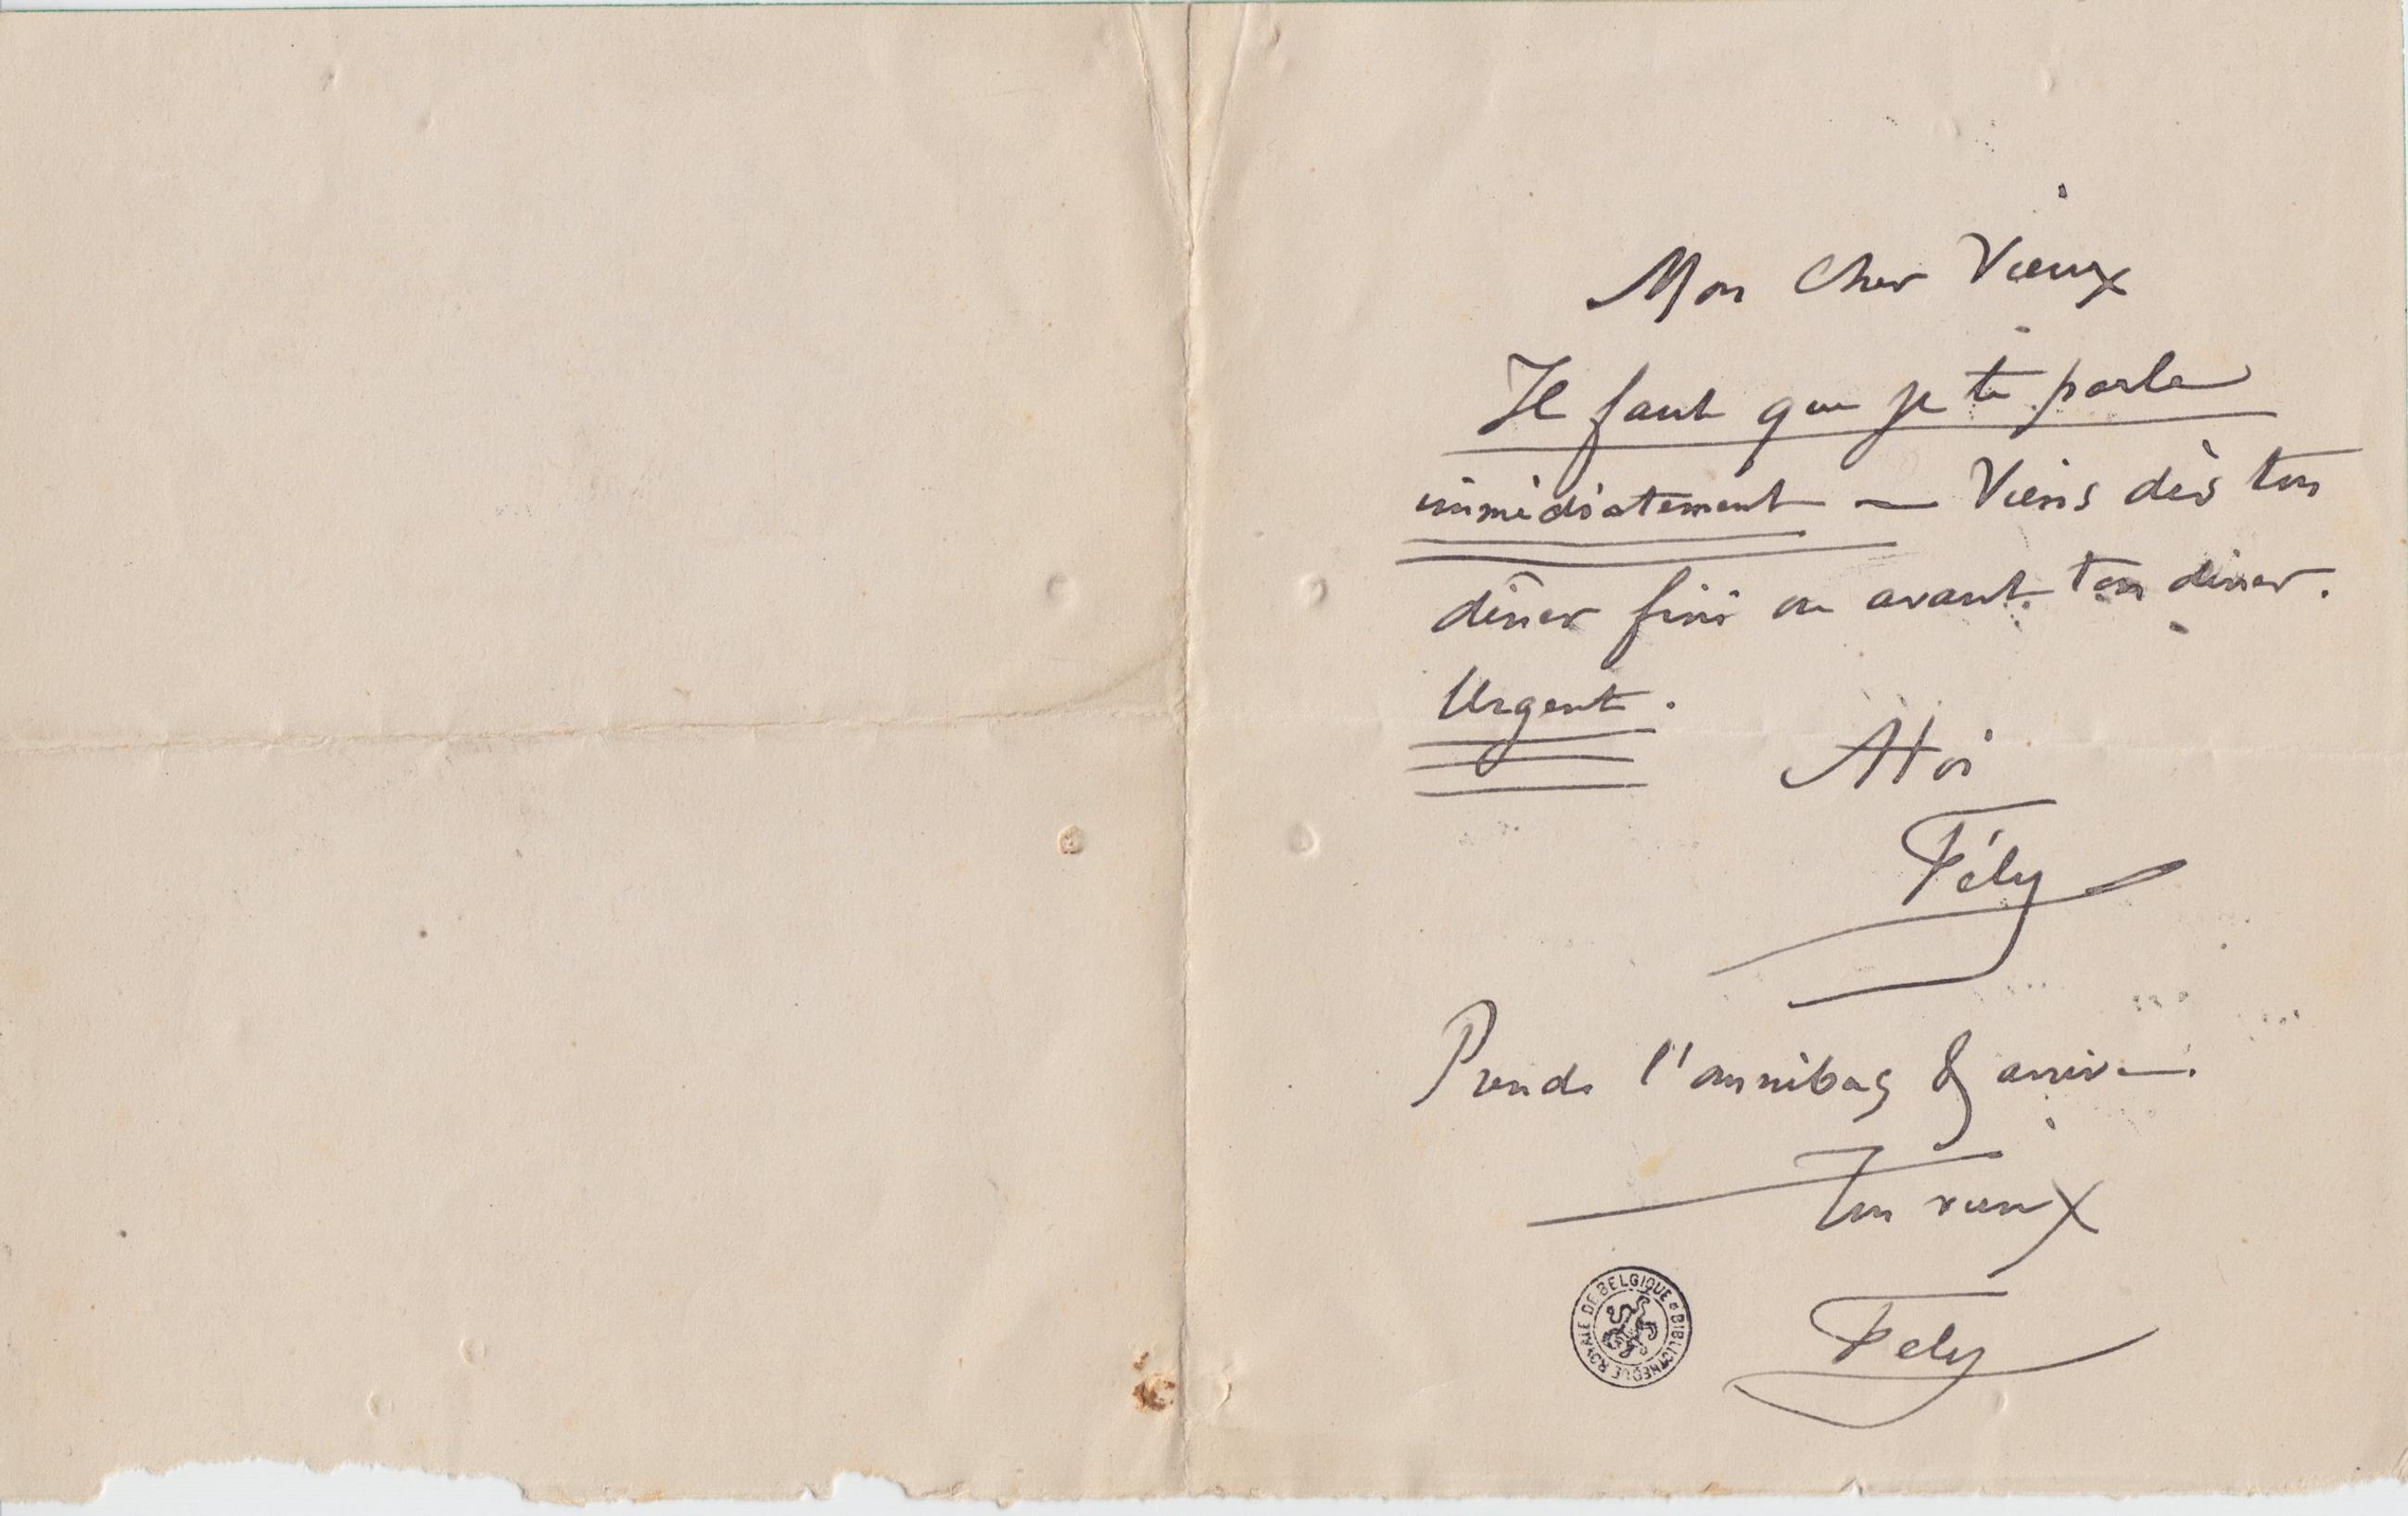 Mon Cher Vieux
Il faut que je te parle
immédiatement — Viens dès ton
diner fini ou avant ton diner.
Urgent.
A toi
Fély
Prends l'omnibus & arrive.
Ton vieux
Fely
BIBLIOTHEQUE ROYALE DE BELGIQUE